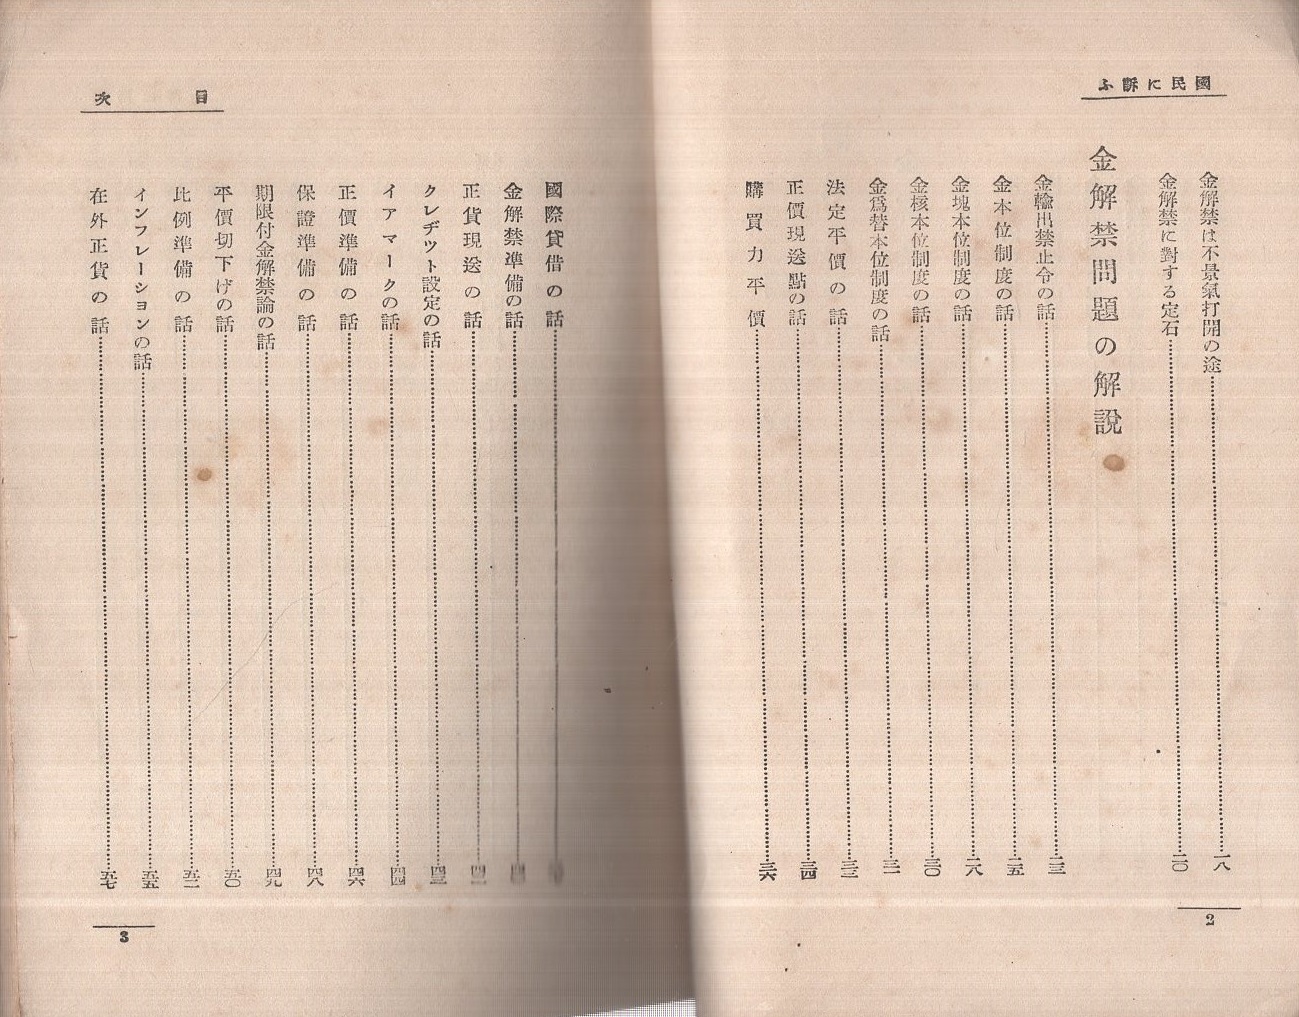 國民に訴ふ
金解禁は不景氣打開の途……一八
金解禁に對する定石……二〇
金解禁問題の解說
金輸出禁止令の話……二三
金本位制度の話……二五
金塊本位制度の話……二八
金核本位制度の話……三〇
金爲替本位制度の話……三一
法定平價の話……三三
正價現送點の話……三四
購買力平價……三六
2
目次
國際貸借の話
金解禁準備の話
正貨現送の話
クレヂツト設定の話……四三
イアマークの話……四四
正價準備の話……四六
保證準備の話……四八
期限付金解禁論の話……四九
平價切下げの話……五〇
比例準備の話……五二
インフレーシヨンの話……五五
在外正貨の話……五七
3